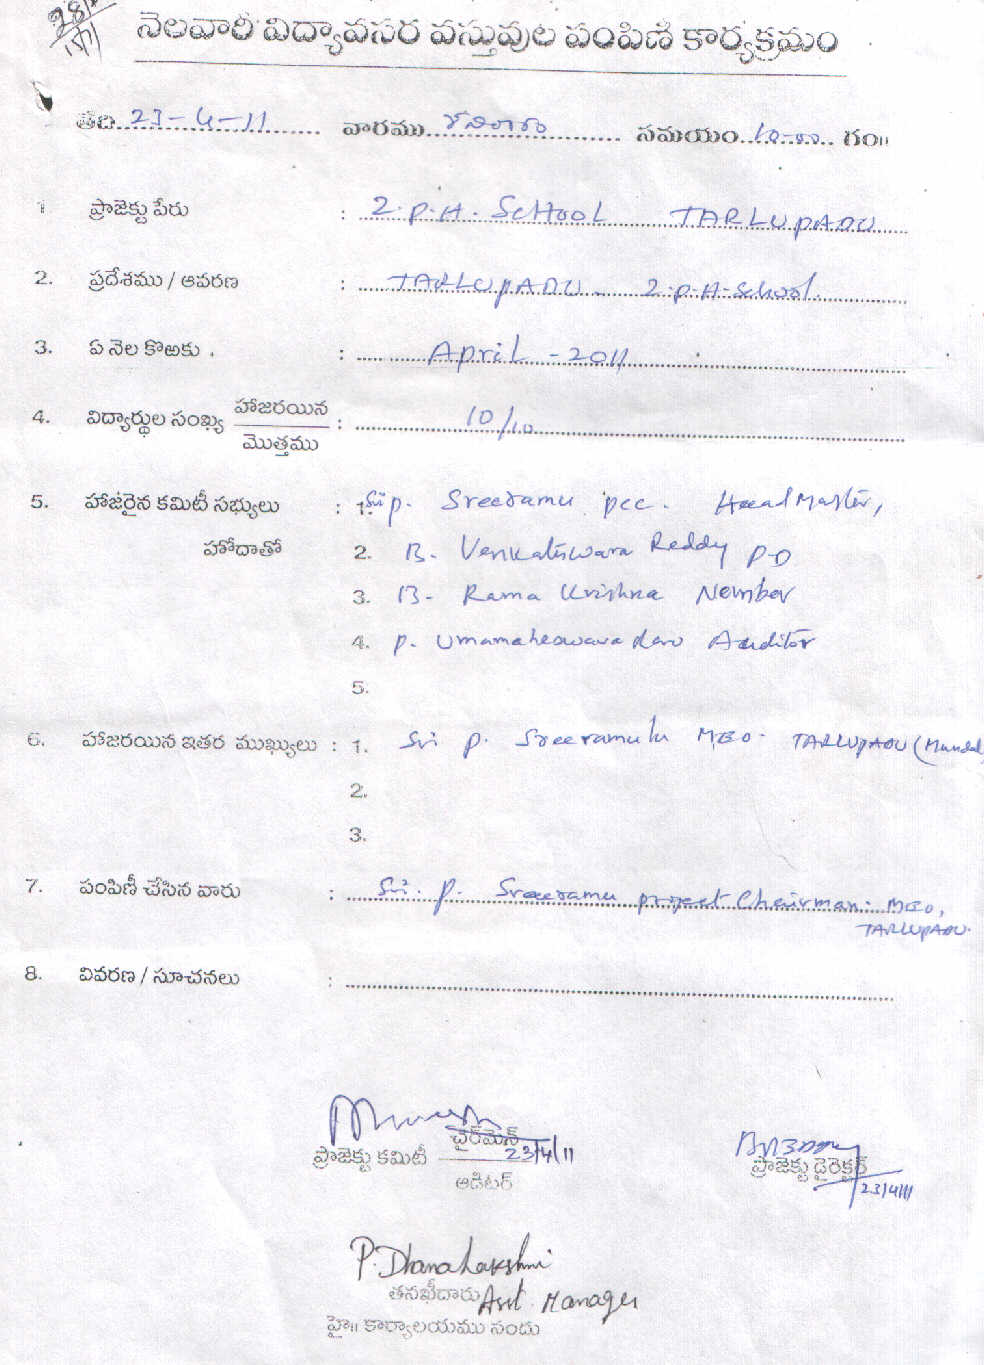 28/
15/7
నెలవారీ విద్యావసర వస్తువుల పంపిణీ కార్యక్రమం
తేది..23-4-11.......... వారము..........  సమయం..10-00.. గం॥
1 ప్రాజెక్టు పేరు : Z.P.H. SCHOOL TARLUPADU
2. ప్రదేశము / ఆవరణ : TARLUPADU - Z.P.H-School.
3. ఏ నెల కొఱకు . : April - 2011
4. విద్యార్థుల సంఖ్య హాజరయిన / మొత్తము : 10/10
5. హాజరైన కమిటీ సభ్యులు : 1. Sri P. Sreeramu pcc. Head Master,
హోదాతో 2. B. Venkateswara Reddy P.D
3. B. Rama Krishna Member
4. P. Umamaheswara Rao Auditor
5.
6. హాజరయిన ఇతర ముఖ్యులు : 1. Sri P. Sreeramulu MEO. TARLUPADU (Mandal)
2.
3.
7. పంపిణీ చేసిన వారు : Sri. P. Sreeramu project Chairman: MEO,
TARLUPADU.
8. వివరణ / సూచనలు :
ప్రాజెక్టు కమిటీ ఛైర్‌మెన్ 23/4/11
ఆడిటర్
ప్రాజెక్టు డైరెక్టర్
23/4/11
P. Dhanalakshmi
తనిఖీదారు Asst. Manager
హై॥ కార్యాలయము నందు